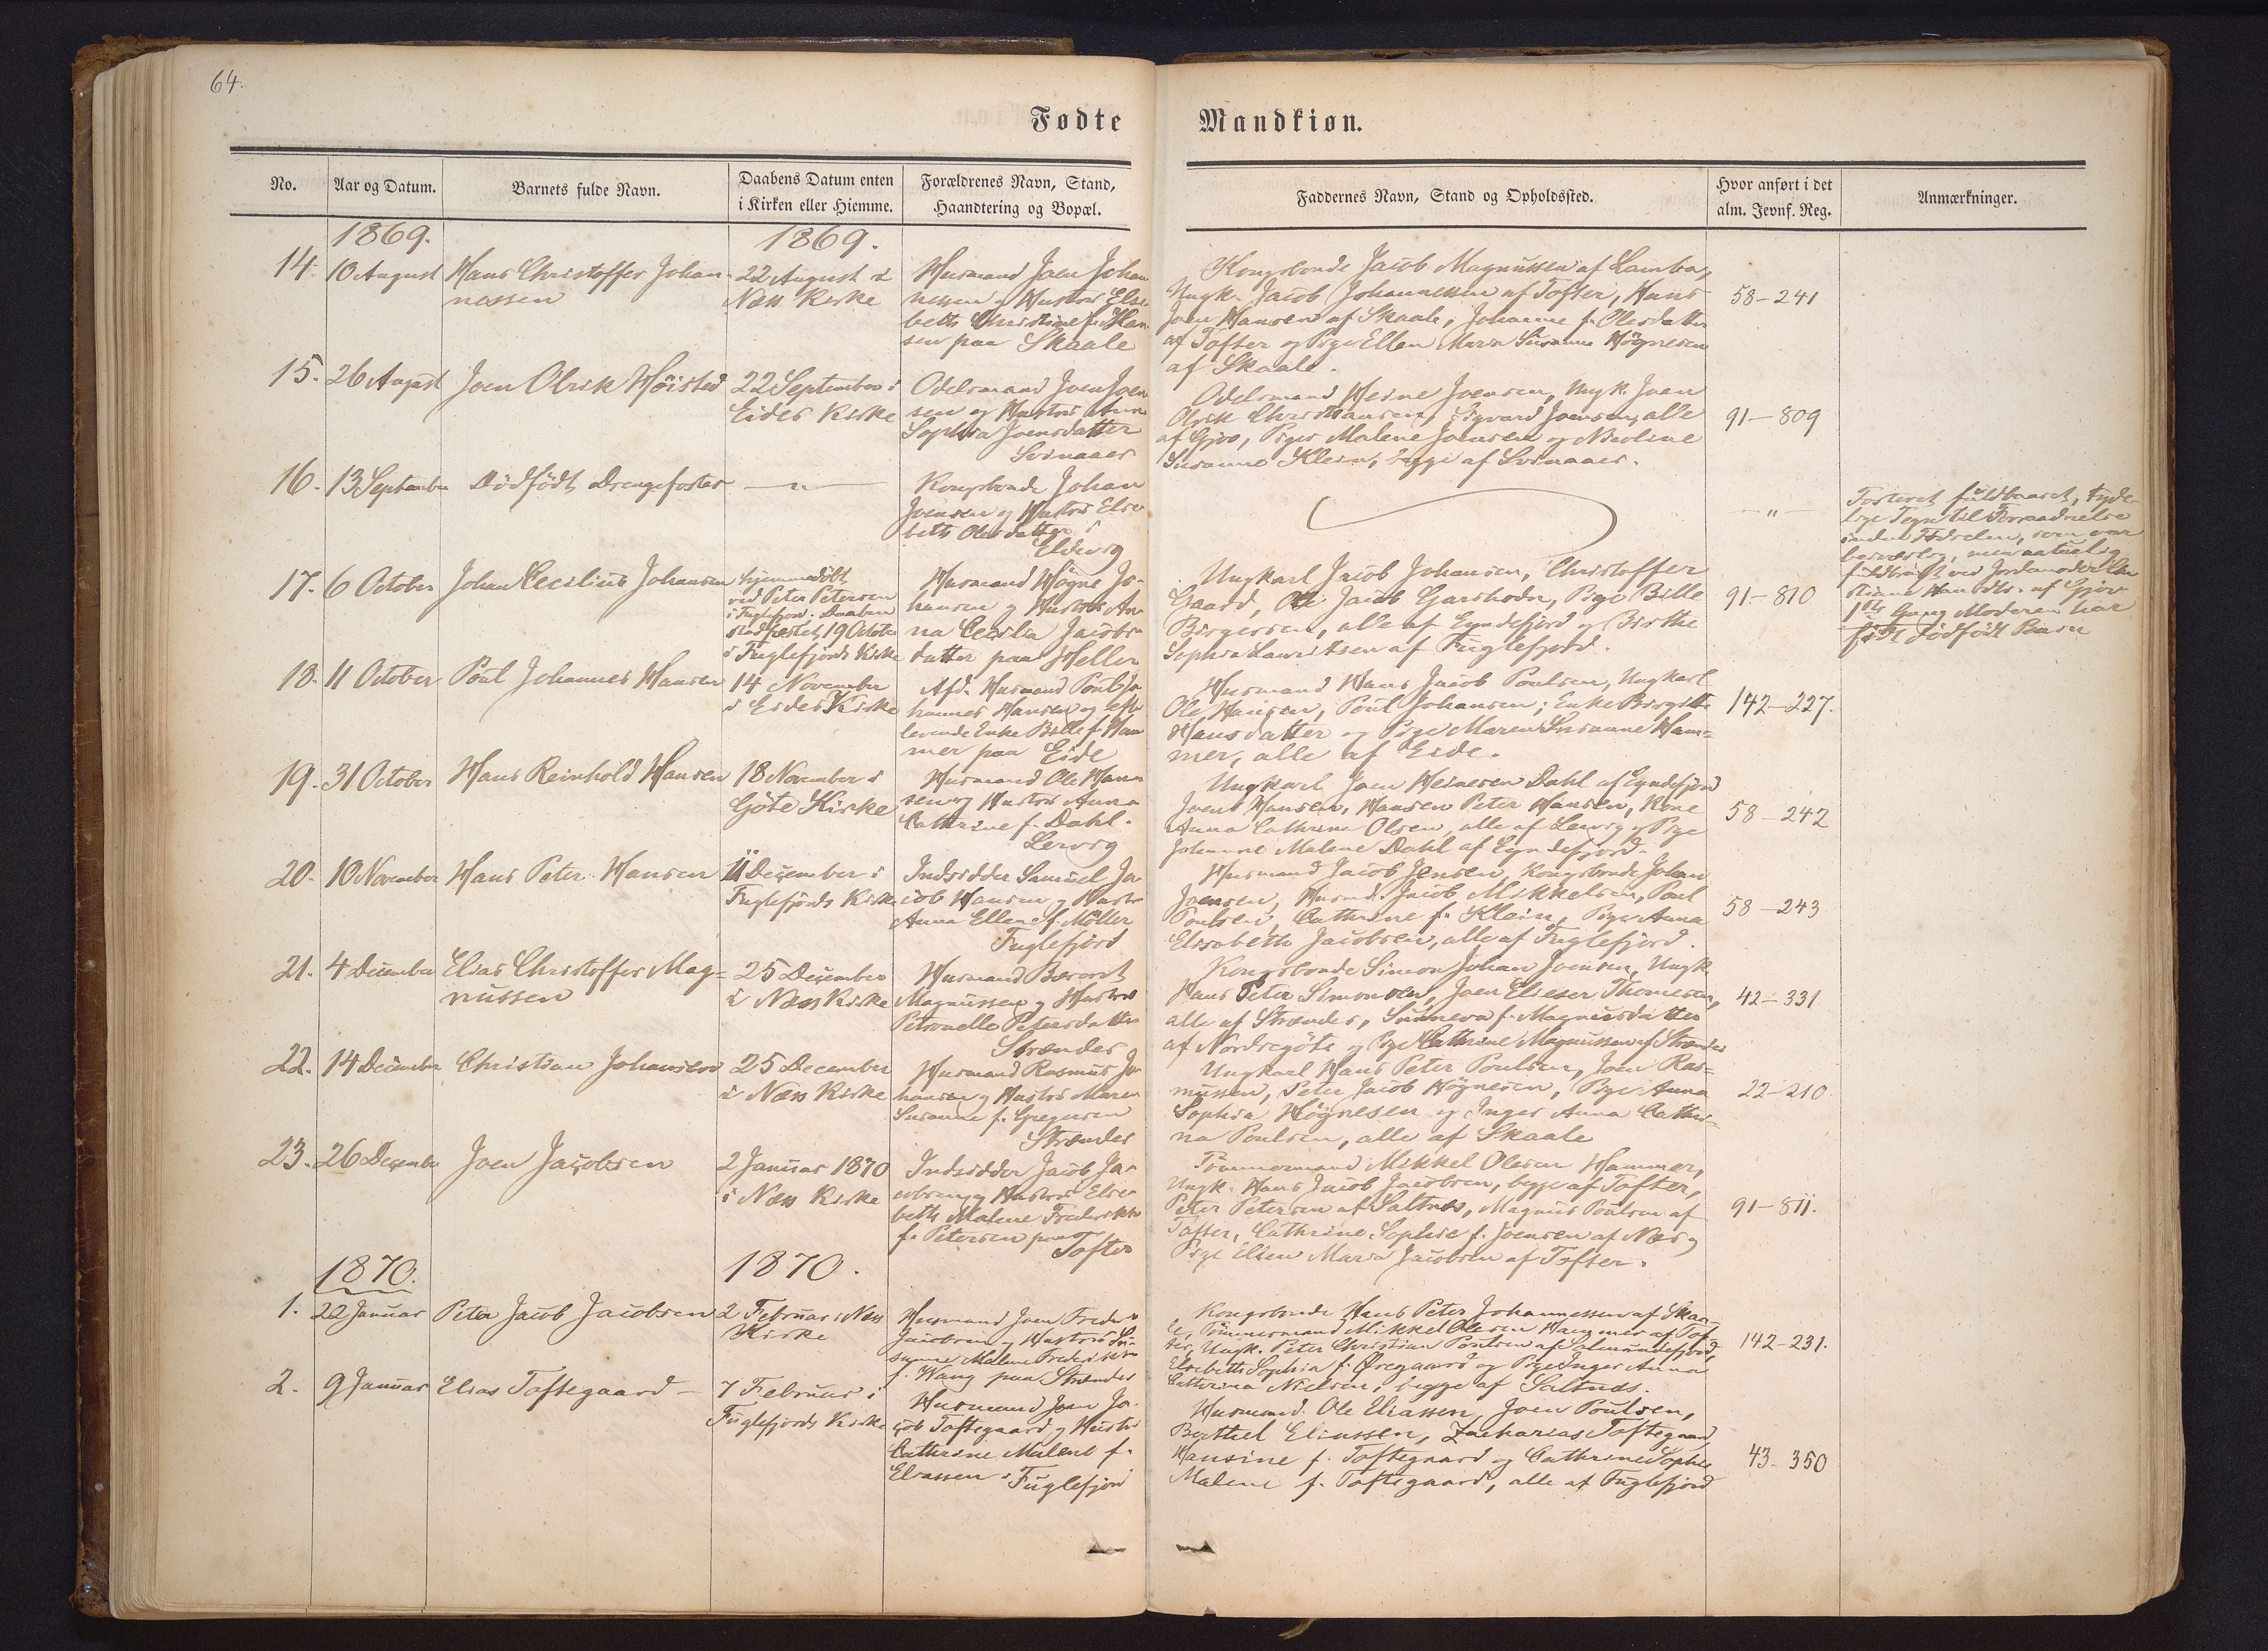 64.
Fødte Mandkiøn.
No.
Aar og Datum.
Barnets fulde Navn.
Daabens Datum enten
i Kirken eller Hiemme.
Forældrenes Navn, Stand,
Haandtering og Bopæl.
Faddernes Navn, Stand og Opholdssted.
Hvor anført i det
alm. Jevnf. Reg.
Anmærkninger.
1869.
1869.
14.
10 August
Hans Christoffer Johan-
nessen
22 August i
Næss Kirke
Husmand Joen Johan
nessen og Hustru Else-
beth Christine f. Han
sen paa Skaale
Kongsbonde Jacob Magnussen af Lamba,
Ungk. Jacob Johannessen af Tofter, Hans
Joen Hansen af Skaale, Johanne f. Olesdatter
af Tofter og Pige Ellen Maria Susanne Högnesen
af Skaale.
58-241
15.
26 August
Joen Olrik Höisted
22 September i
Eides Kirke
Odelsmand Joen Joen
sen og Hustru Anne
Sophia Joensdatter
Svinaaer
Odelsmand Heine Joensen, Ungk. Joen
Olrik Christiansen, Sigvard Joensen, alle
af Gjov, Piger Malene Joensen og Nicoline
Susanne Klein, begge af Svinaaer.
91-809
16.
13 September
Dödfödt Drengefoster
— " —
Kongsbonde Johan
Joensen og Hustru Else-
beth Olesdatter i
Eldevig
— " —
Fosteret fuldbaaret, tyde-
lige Tegn til Forraadnelse
inden Födselen, som var
besværlig, men naturlig
fuldbragt ved Jordemoder
af Gjov
1ste Gang Moderen har
födt dödfödt Barn
17.
6 October
Johan Cecilius Johansen
hjemmedöbt
ved Peter Petersen
i Fuglefjord. Daaben
stadfæstet 19 October
i Fuglefjords Kirke
Husmand Högne Jo-
hansen og Hustru An-
na Cecilia Jacobs-
datter paa Heller
Ungkarl Jacob Johansen, Christoffer
Gaard, Ole Jacob Garshodn, Pige Bille
Birgersen, alle af Eyndefjord og Birthe
Sophia Lauritsen af Fuglefjord.
91-810
18.
11 October
Poul Johannes Hansen
14 November
i Eides Kirke
Afd. Husmand Poul Jo-
hannes Hansen og efter
levende Enke Bille f. Ham
mer paa Eide
Husmand Hans Jacob Poulsen, Ungkarl
Ole Hansen, Poul Johansen; Enke Birgitte
Hansdatter og Pige Maren Susanne Ham=
mer, alle af Eide.
142-227.
19.
31 October
Hans Reinhold Hansen
18 November i
Göte Kirke
Husmand Ole Han
sen og Hustru Anna
Cathrine f. Dahl.
Lervig
Ungkarl Joen Heinesen Dahl af Eyndefjord
Joen Hansen, Hansen Peter Hansen, Kone
Anna Cathrine Olsen, alle af Lervig og Pige
Johanne Malene Dahl af Eyndefjord.
58-242
20.
10 November
Hans Peter Hansen
11 December i
Fuglefjords Kirke
Indsidder Samuel Ja-
cob Hansen og Hustru
Anna Ellene f. Möller
Fuglefjord
Husmand Jacob Jensen, Kongsbonde Johan
Joensen, Husmd. Jacob Mikkelsen, Poul
Poulsen, Cathrine f. Klein, Pige Anna
Elisabeth Jacobsen, alle af Fuglefjord.
58-243
21.
4 December
Elias Christoffer Mag=
nussen
25 December
i Næss Kirke
Husmand
Magnussen og Hustru
Petronelle Petersdatter
Strænder
Kongsbonde Simon Johan Joensen, Ungk.
Hans Peter Simonsen, Joen Elieser Thomesen,
alle af Strænder, Sunneva f. Magnusdatter
af Nordregöte og Pige Cathrine Magnussen af Strænder
42-331
22.
14 December
Christian Johansen
25 December
i Næss Kirke
Husmand Rasmus Jo
hansen og Hustru Maren
Susanne f. Gregersen
Strænder
Ungkarl Hans Peter Poulsen, Joen Ras=
mussen, Peter Jacob Högnesen, Pige Anna
Sophia Högnesen og Inger Anna Cathri-
na Poulsen, alle af Skaale
22-210
23.
26 December
Joen Jacobsen
2 Januar 1870
i Næss Kirke
Indsidder Jacob Ja-
cobsen og Hustru Else-
beth Malene Frederikke
f. Petersen paa
Tofter
Tömmermand Mikkel Olesen Hammer,
Ungk. Hans Jacob Jacobsen, begge af Tofter,
Peter Petersen af Saltnes, Magnus Poulsen af
Tofter, Cathrine Sophie f. Joensen af Næs og
Pige Ellen Maria Jacobsen af Tofter.
91-811.
1870.
1870.
1.
22 Januar
Peter Jacob Jacobsen
2 Februar i Næss
Kirke
Husmand Joen Freder.
Jacobsen og Hustru Su-
sanne Malene Frederikke
f. Wang paa Strænder
Kongsbonde Hans Peter Johannessen af Skaa-
le, Tömmermand Mikkel Olesen Hammer af Tof
ter, Ungk. Peter Christian Poulsen af Salmundefjord,
Elsebeth Sophia f. Öregaard og Pige Inger Anna
Cathrina Nielsen, begge af Saltnes.
142-231.
2.
9 Januar
Elias Toftegaard —
7 Februar i
Fuglefjords Kirke
Husmand Joen Ja-
cob Toftegaard og Hustru
Cathrine Malene f.
Eliassen i Fuglefjord
Husmand Ole Eliassen, Joen Poulsen,
Berthel Eliassen, Zacharias Toftegaard,
Hansine f. Toftegaard og Cathrine Sophie
Malene f. Toftegaard, alle af Fuglefjord
43-350